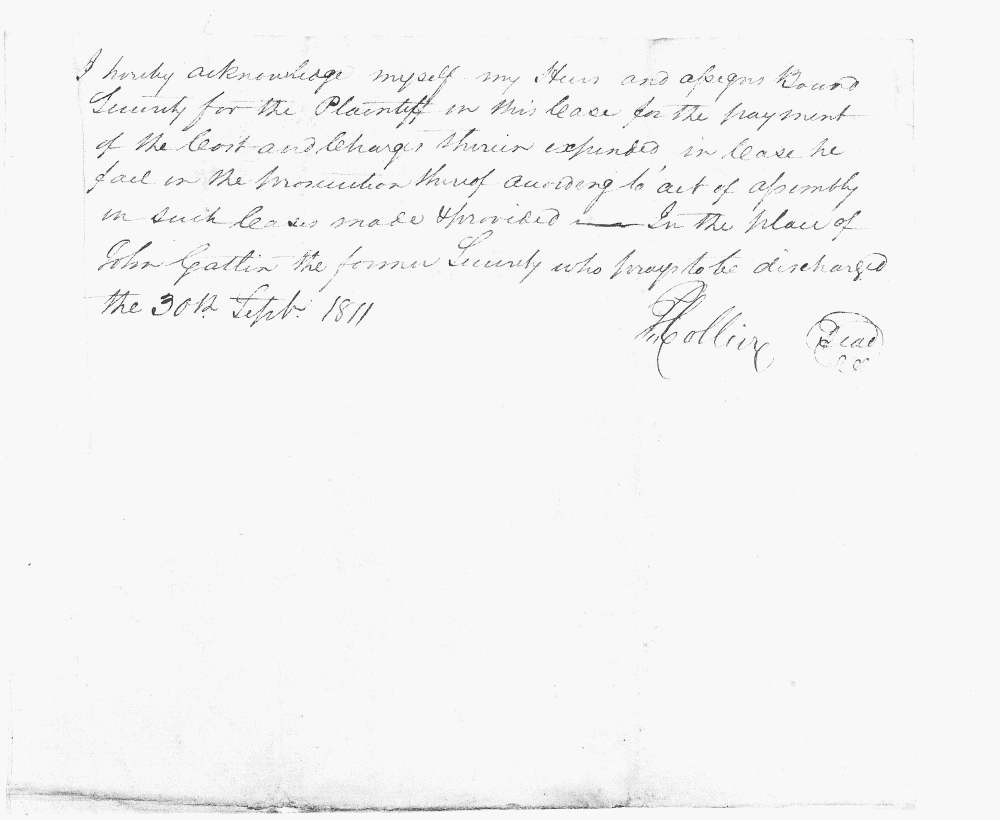 I hereby acknowledge myself my Heirs and assigns Bound
Security for the Plaintiff in this Case for the payment
of the Cost and Charges therein expended in Case he
fail in the prosecution thereof according to act of assembly
in such Cases made & provided — In the place of
John Gatlin the former Security who prays to be discharged
the 30th Septr. 1811
Collier